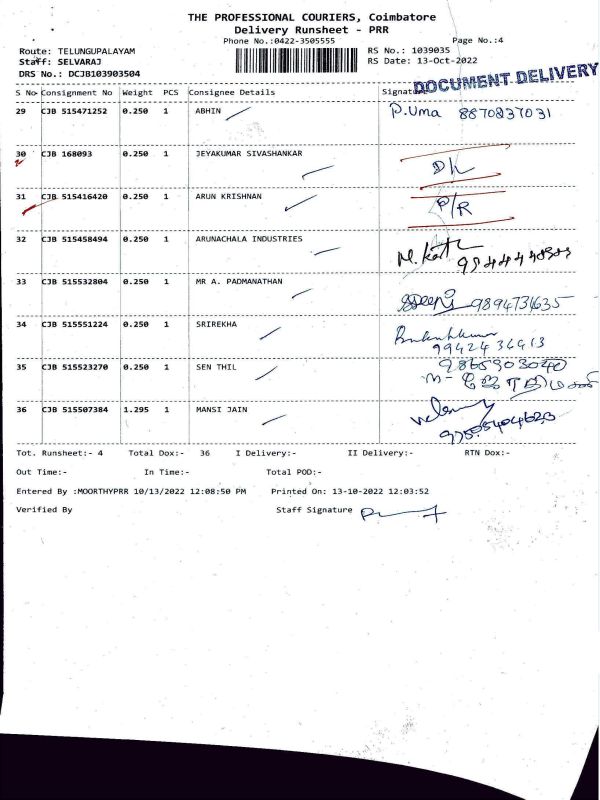 THE PROFESSIONAL COURIERS, Coimbatore
Delivery Runsheet - PRR
Phone No.:0422-3505555 Page No.:4
Route: TELUNGUPALAYAM RS No.: 1039035
Staff: SELVARAJ RS Date: 13-Oct-2022
DRS No.: DCJB103903504
DOCUMENT DELIVERY
S No Consignment No Weight PCS Consignee Details Signature
29 CJB 515471252 0.250 1 ABHIN P. Uma 8870837031
30 CJB 168093 0.250 1 JEYAKUMAR SIVASHANKAR D/L
31 CJB 515416420 0.250 1 ARUN KRISHNAN P/R
32 CJB 515458494 0.250 1 ARUNACHALA INDUSTRIES
33 CJB 515532804 0.250 1 MR A. PADMANATHAN 9894731635
34 CJB 515551224 0.250 1 SRIREKHA
9942434913
35 CJB 515523270 0.250 1 SEN THIL 9865903040
36 CJB 515507384 1.295 1 MANSI JAIN
Tot. Runsheet:- 4 Total Dox:- 36 I Delivery:- II Delivery:- RTN Dox:-
Out Time:- In Time:- Total POD:-
Entered By :MOORTHYPRR 10/13/2022 12:08:50 PM Printed On: 13-10-2022 12:03:52
Verified By Staff Signature